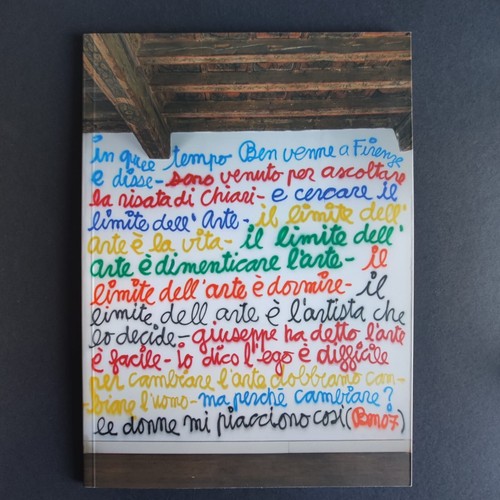 in quel tempo Ben venne a Firenze
e disse- sono venuto per ascoltare
la risata di Chiari- e cercare il
limite dell'Arte- il limite dell'
arte è la vita- il limite dell'
arte è dimenticare l'arte- il
limite dell'arte è dormire- il
limite dell arte è l'artista che
lo decide- giuseppe ha detto l'arte
è facile- io dico l'ego è difficile
per cambiare l'arte dobbiamo cam-
biare l'uomo- ma perchè cambiare?
le donne mi piacciono così (Ben07)